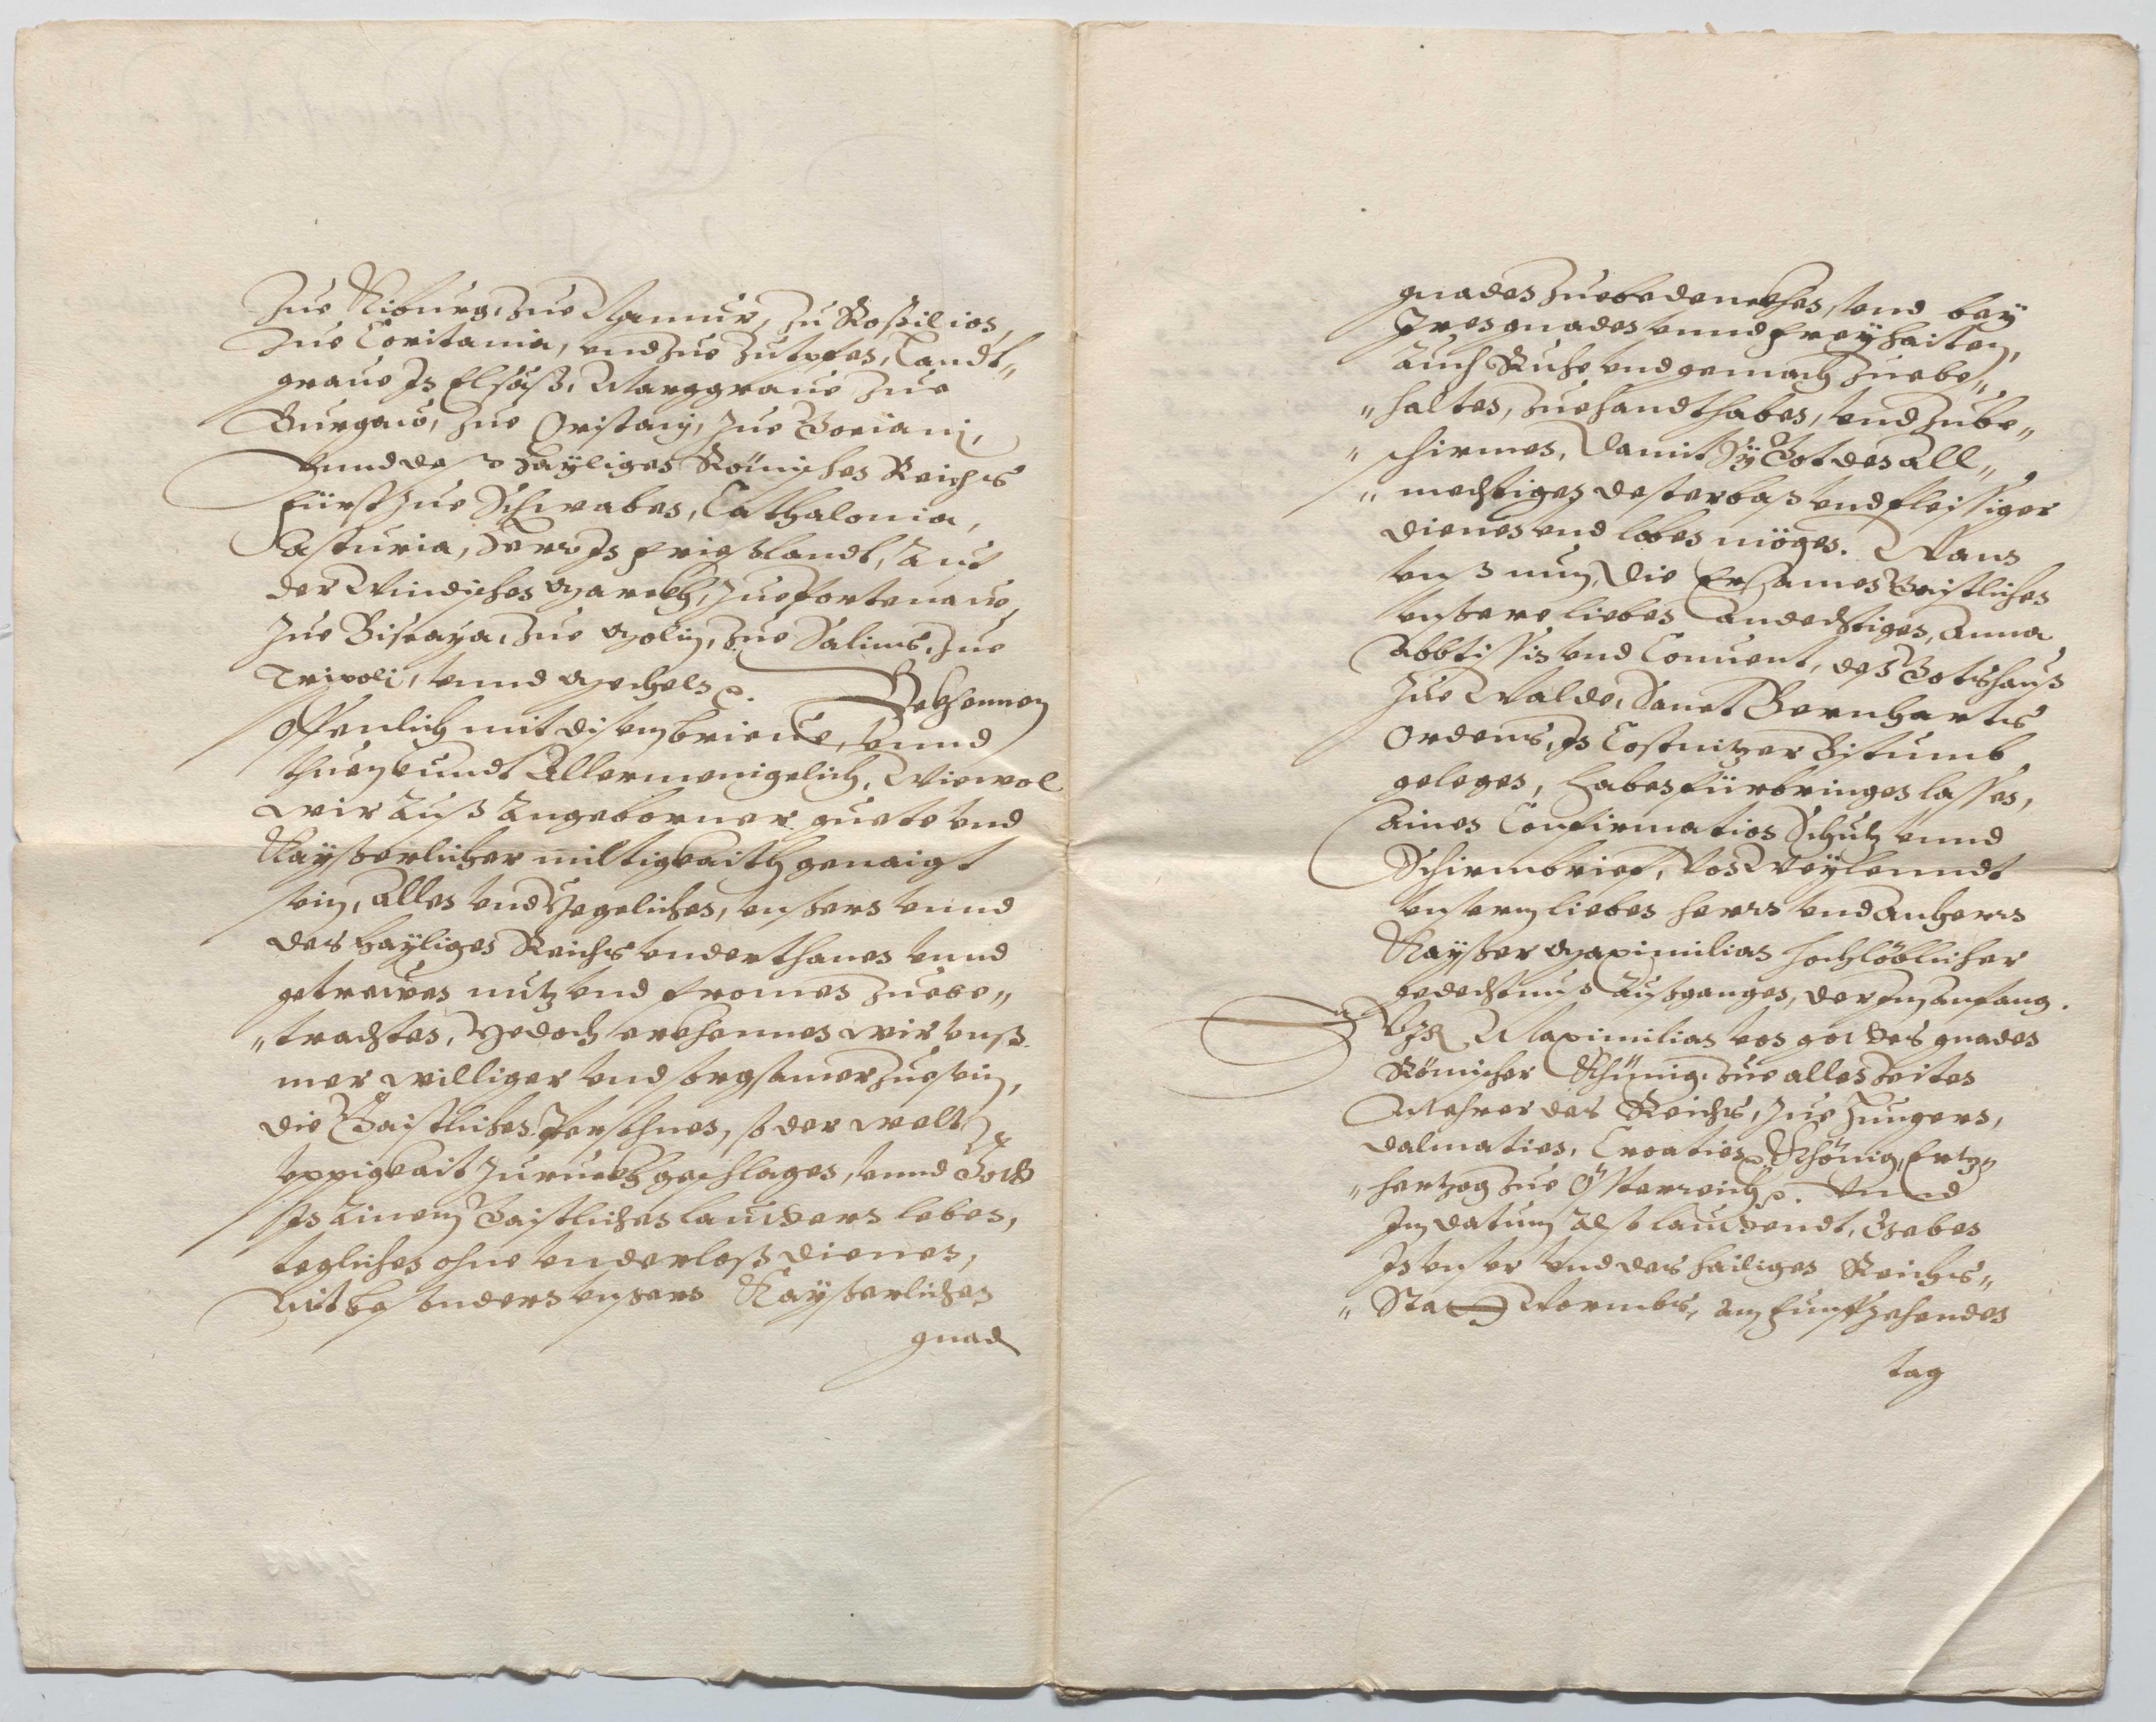 Zue Kiburg, zue Namur, zu Rossilion,
zue Coritania, vnd zue Zutpfen, Landt„
graue In Elsäß, Marggraue zue
Burgaw, zue Oristany, zue Gociani,
Vnnd deß Hayligen Römischen Reichs
fürst zue Schwaben, Cathalonia,
Asturia, Herr In frießlandt, Auf
der Windischen Marckh, zue portenaue,
zue Biscaya, zue Molin, zue Salins, zue
Tripoli, vnnd Mecheln ꝛc. Bekhennen
offenlich mit disem brieue, vnnd
thuen kundt Allermenigelich, Wiewol
wir auß angeborner guete vnd
Kayßerlicher miltigkaith genaigt
sein, alles vnd Yegeliches, vnsers vnnd
des hayligen Reichs vnderthanen vnnd
getrewen nutz vnd fromen zuebe„
„trachten, Yedoch erkhennen wir vnß
mer williger vnd sorgsamer zuesein,
die Gaistlichen Personen, so der welt
yppigkait zuruckh geschlagen, vnnd Gott
In ainem Gaistlichen lautern leben,
teglichen ohne vnderloß dienen,
Mit besondern vnsern Kayserlichen
gnad
gnaden zuebedenckhen, vnd bey
Iren gnaden vnnd freyhaiten,
auch Ruhe vnd gemach zuebe„
„halten, zuehandthaben, vnd zube„
„schirmen, Damit Sy Got den All„
„mechtigen dester baß vnd fleissiger
dienen vnd loben mögen. Wann
vnß nun, die Ersamen Gaistlichen
vnsere lieben andechtigen, Anna
Abbtissin vnd Conuent, des Gotshauß
zue Walde, Sanct Bernharts
Ordens, In Costnitzer Bistumb
gelegen, haben fürbringen lassen,
ainen Confirmation Schutz vnnd
Schirmbrief, Von Weylenndt
vnserm lieben herrn vnd Anherrn
Kayßer Maximilian hochlöblicher
gedechtnus außgangen, der Im anfang.
Wir Maximilian von gottes gnaden
Römischer Khünig, zue allen Zeiten
Mehrer des Reichs, zue Hungern,
Dalmatien, Croatien ꝛc. Khönig, Ertz„
„hertzog zue Österreich ꝛc. Vnnd
Im datum also lautendt, Geben
In vnser vnd des hailigen Reichs„
„Statt Wormbs, am fünffzehenden
tag